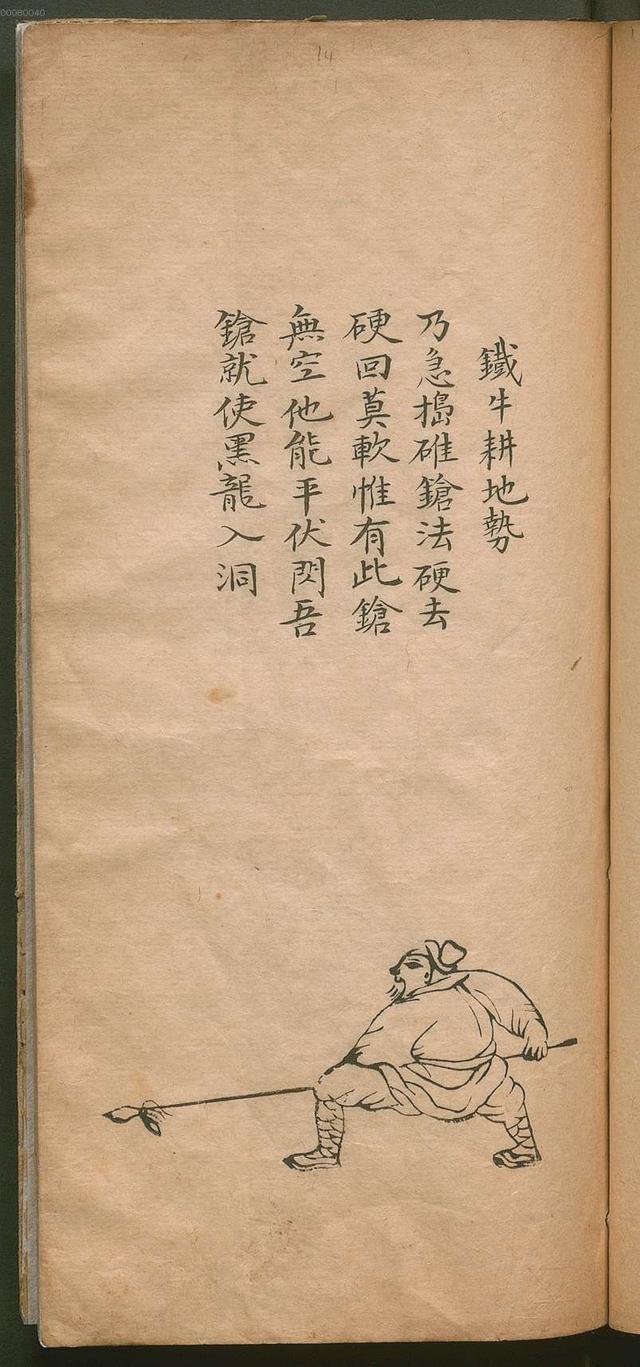 00080040
14
鐵牛耕地勢
乃急搗碓鎗法硬去
硬回莫軟惟有此鎗
無空他能平伏閃吾
鎗就使黑龍入洞